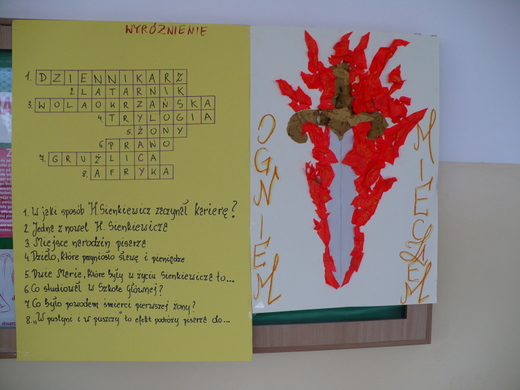 WYRÓŻNIENIE
1. DZIENNIKARZ
2. LATARNIK
3. WOLAOKRZAŃSKA
4. TRYLOGIA
5. ŻONY
6. PRAWO
7. GRUŹLICA
8. AFRYKA
1. W jaki sposób H Sienkiewicz zaczynał karierę?
2. Jedna z nowel H. Sienkiewicza
3. Miejsce narodzin pisarza
4. Dzieło, które przyniosło sławę i pieniądze
5. Dwie Marie, które były w życiu Sienkiewicza to...
6. Co studiował w Szkole Głównej?
7. Co było powodem śmierci pierwszej żony?
8. „W pustyni i w puszczy" to efekt podróży pisarza do...
OGNIEM
MIECZEM